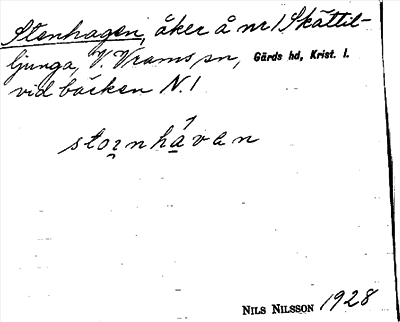 Stenhagen, åker å nr 1 Skättil-
ljunga, V. Vrams sn, Gärds hd, Krist. l.
vid bäcken N. 1
stornhávan
NILS NILSSON 1928